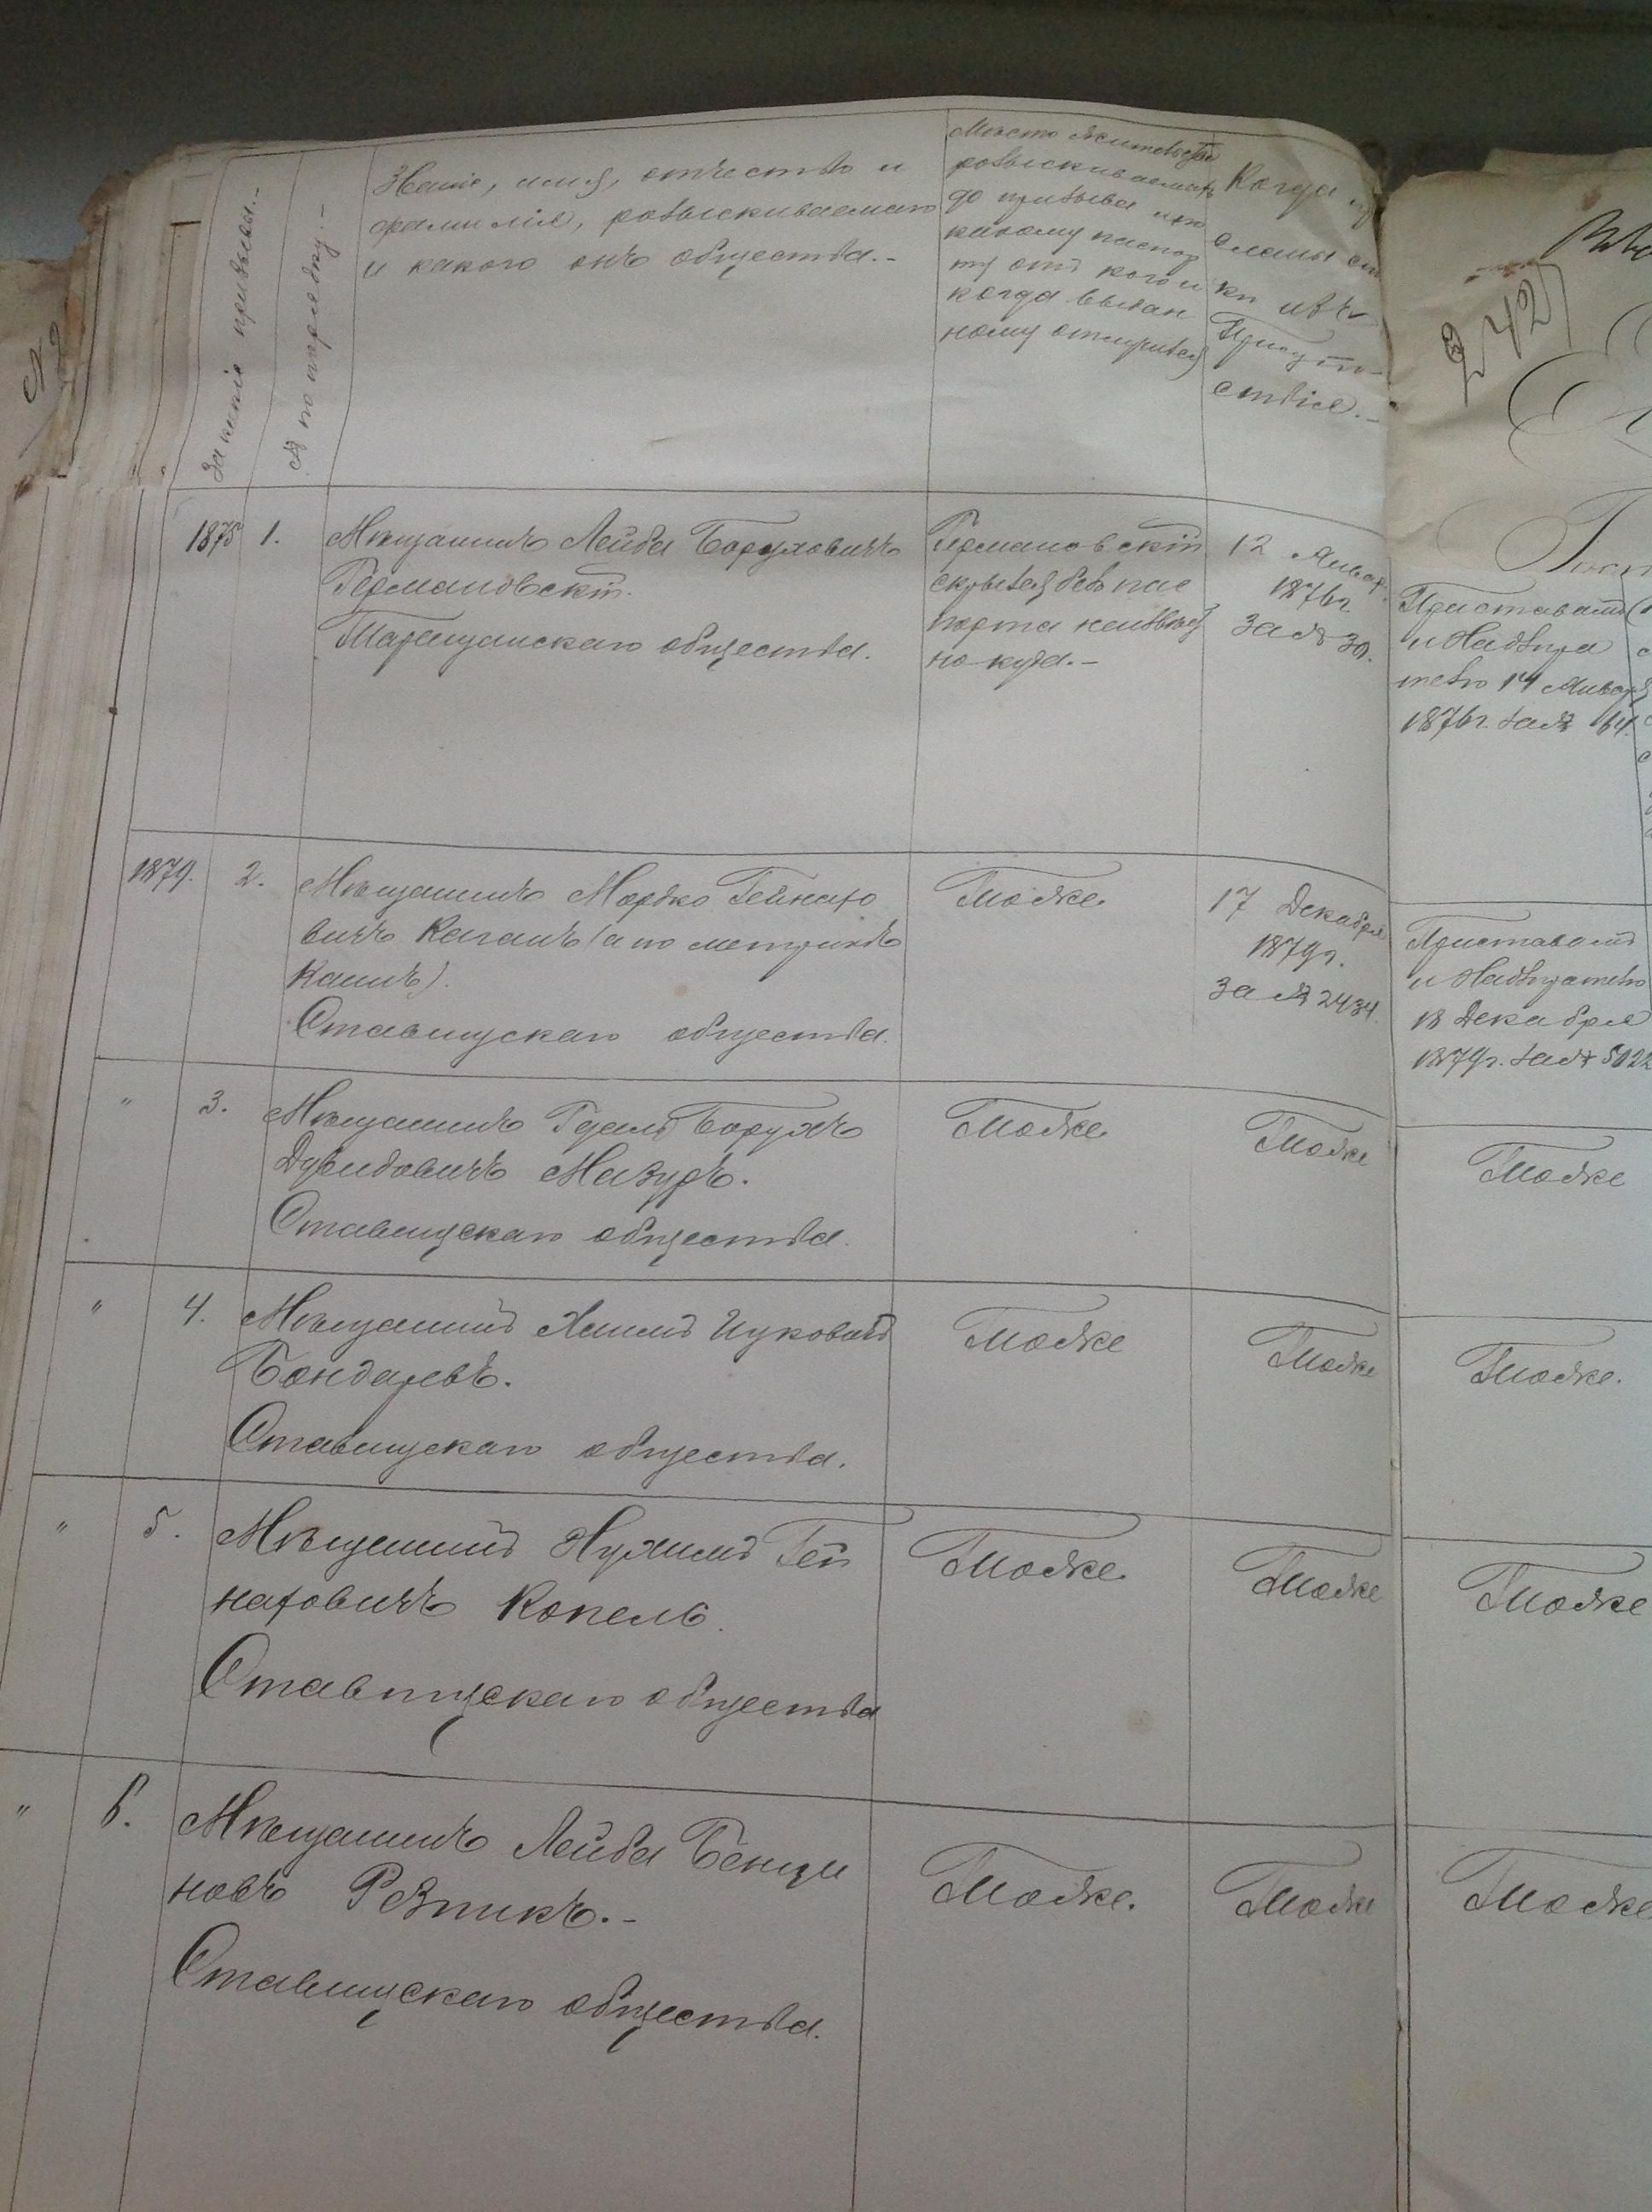 За какіе призывы.-
№ по порядку.-
Званіе, имя, отчество и
фамилія, розыскиваемаго
и какого онъ общества.-
Место жительства
розыскиваемаго
до призыва и по
какому паспор
ту отъ кого и
когда выдан
ному отлучился
Когда
сланы
ки изъ
Присут
ствія.-
242
1875 1.
Мѣщанинъ Лейба Боруховичъ
Германовскій.
Таращанскаго общества.
Германовскій
скрылся безъ пас
порта неизвѣст
но куда.-
12 Января
1876 г.
за № 30.
Приставамъ
и Надзира
телю 14 Января
1876 г. за № 64.
1879. 2.
Мѣщанинъ Мордко Гейнахо
вичъ Каганъ (а по метрикѣ
Канъ).
Ставищскаго общества.
Тоже.
17 Декабря
1879 г.
за № 2434.
Приставамъ
и Надзирателю
18 Декабря
1879 г. за № 5122
" 3.
Мѣщанинъ Борухъ
Дувидовичъ Мазуръ.
Ставищскаго общества.
Тоже.
Тоже
Тоже
" 4.
Мѣщанинъ Хаимъ Ицковичъ
Бондаревъ.
Ставищскаго общества.
Тоже
Тоже
Тоже.
" 5.
Мѣщанинъ Нухимъ Гей
наховичъ Копель.
Ставищскаго общества
Тоже.
Тоже
Тоже
" 6.
Мѣщанинъ Лейба Бенци
новъ Резникъ.-
Ставищскаго общества.
Тоже.
Тоже
Тоже